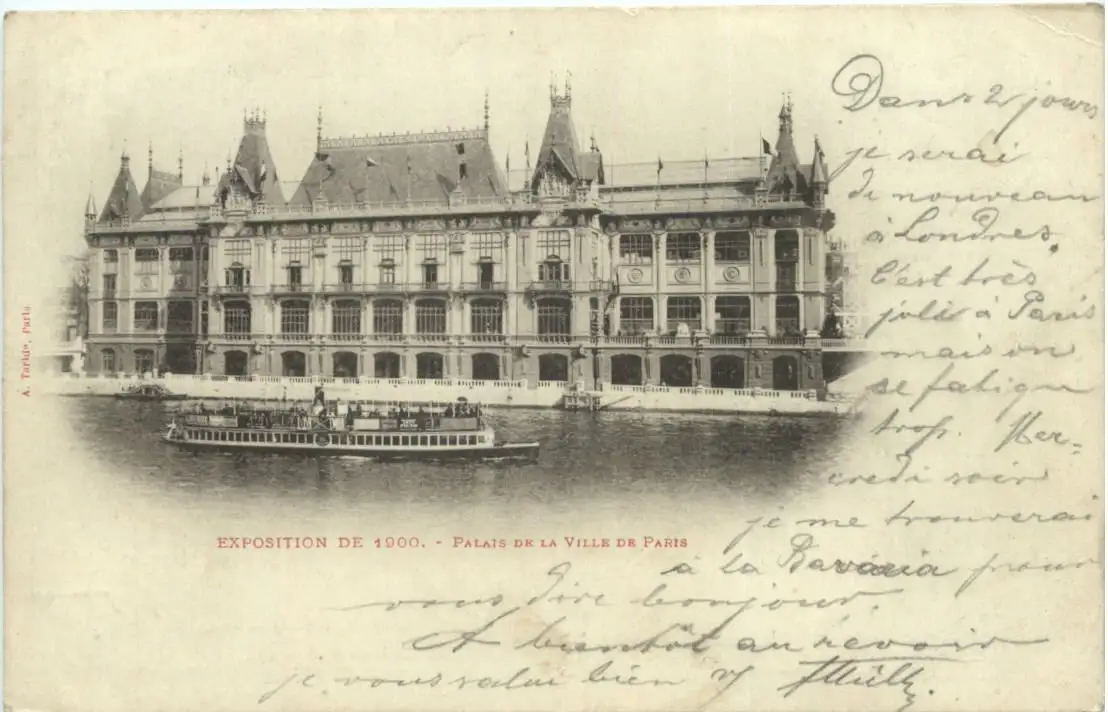 Dans 2 jours
je serai
de nouveau
à Londres.
C'est très
jolie à Paris
mais on
se fatigue
trop. Mer-
credi soir
je me trouverai
à la Bavaria pour
vous dire bonjour.
A bientôt au revoir
je vous bien
EXPOSITION DE 1900. - PALAIS DE LA VILLE DE PARIS
A. Paris.